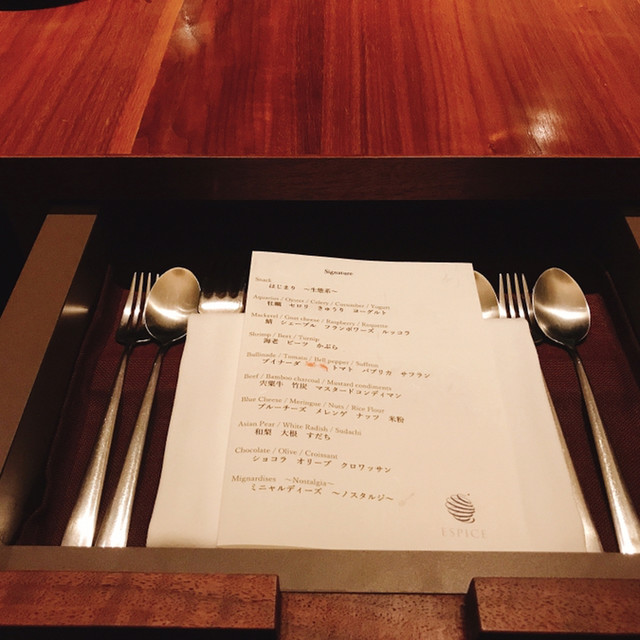 Signature
Snack
はじまり 〜生態系〜
Aquarius / Oyster / Celery / Cucumber / Yogurt
牡蠣 セロリ きゅうり ヨーグルト
Mackerel / Goat cheese / Raspberry / Roquette
鯖 シェーブル フランボワーズ ルッコラ
Shrimp / Beet / Turnip
海老 ビーツ かぶら
Tomato / Bell pepper / Saffron
ブイナーダ トマト パプリカ サフラン
Beef / Bamboo charcoal / Mustard condiments
宍粟牛 竹炭 マスタードコンディマン
Blue Cheese / Meringue / Nuts / Rice Flour
ブルーチーズ メレンゲ ナッツ 米粉
Asian Pear / White Radish / Sudachi
和梨 大根 すだち
Chocolate / Olive / Croissant
ショコラ オリーブ クロワッサン
Mignardises 〜Nostalgia〜
ミニャルディーズ 〜ノスタルジ〜
ESPICE